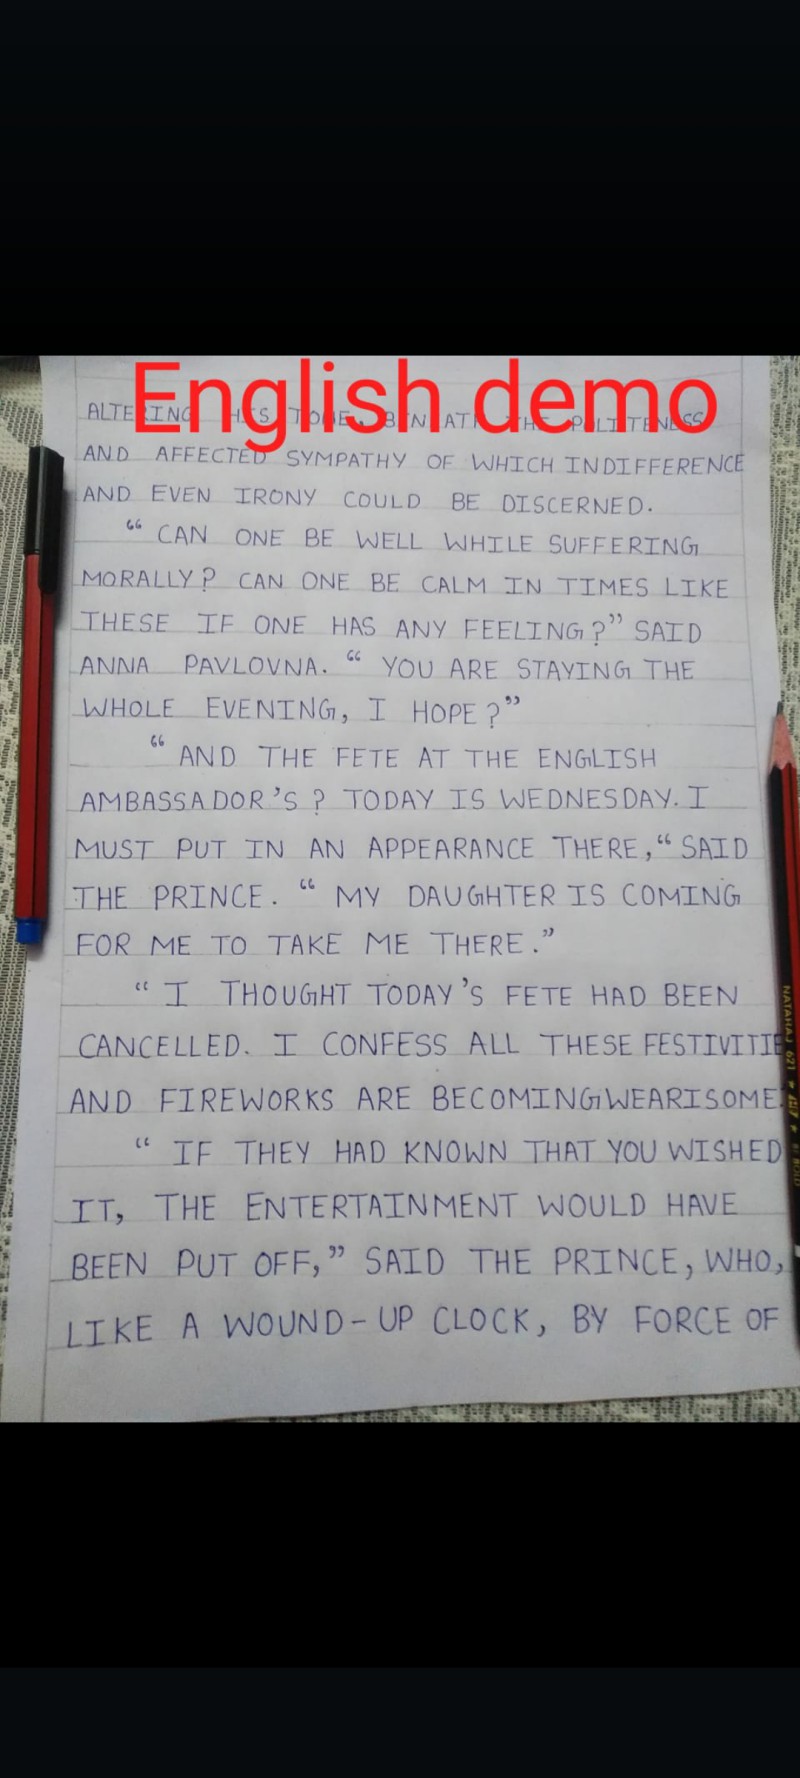 English demo
ALTERING HIS TONE, BENEATH THE POLITENESS
AND AFFECTED SYMPATHY OF WHICH INDIFFERENCE
AND EVEN IRONY COULD BE DISCERNED.
“ CAN ONE BE WELL WHILE SUFFERING
MORALLY? CAN ONE BE CALM IN TIMES LIKE
THESE IF ONE HAS ANY FEELING?” SAID
ANNA PAVLOVNA. “ YOU ARE STAYING THE
WHOLE EVENING, I HOPE?”
“ AND THE FETE AT THE ENGLISH
AMBASSADOR'S? TODAY IS WEDNESDAY. I
MUST PUT IN AN APPEARANCE THERE,“ SAID
THE PRINCE. “ MY DAUGHTER IS COMING
FOR ME TO TAKE ME THERE.”
“ I THOUGHT TODAY'S FETE HAD BEEN
CANCELLED. I CONFESS ALL THESE FESTIVITIE
AND FIREWORKS ARE BECOMING WEARISOME.
“ IF THEY HAD KNOWN THAT YOU WISHED
IT, THE ENTERTAINMENT WOULD HAVE
BEEN PUT OFF,” SAID THE PRINCE, WHO,
LIKE A WOUND-UP CLOCK, BY FORCE OF
NATARAJ 621